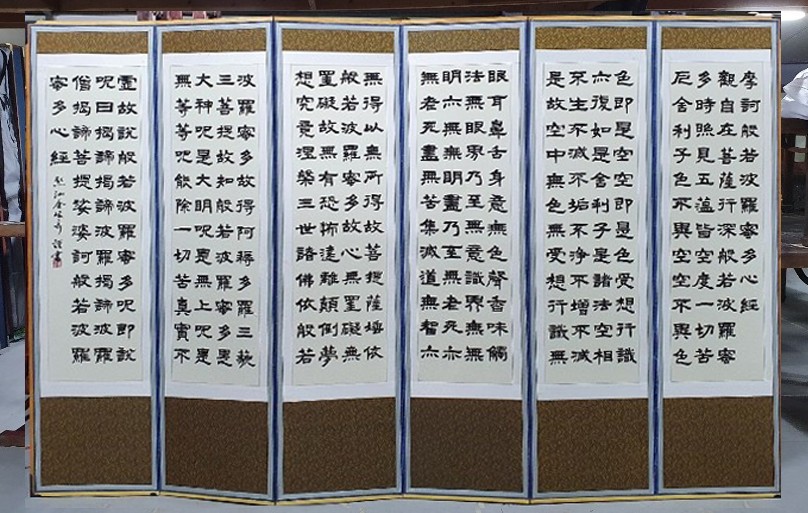 摩訶般若波羅蜜多心經
觀自在菩薩行深般若波羅蜜
多時照見五蘊皆空度一切苦
厄舍利子色不異空空不異色
色即是空空即是色受想行識
亦復如是舍利子是諸法空相
不生不滅不垢不淨不增不減
是故空中無色無受想行識無
眼耳鼻舌身意無色聲香味觸
法無眼界乃至無意識界無無
明亦無無明盡乃至無老死亦
無老死盡無苦集滅道無智亦
無得以無所得故菩提薩埵依
般若波羅蜜多故心無罣礙無
罣礙故無有恐怖遠離顚倒夢
想究竟涅槃三世諸佛依般若
波羅蜜多故得阿耨多羅三藐
三菩提故知般若波羅蜜多是
大神呪是大明呪是無上呪是
無等等呪能除一切苦眞實不
虛故說般若波羅蜜多呪即說
呪曰揭諦揭諦波羅揭諦波羅
僧揭諦菩提娑婆訶般若波羅
蜜多心經